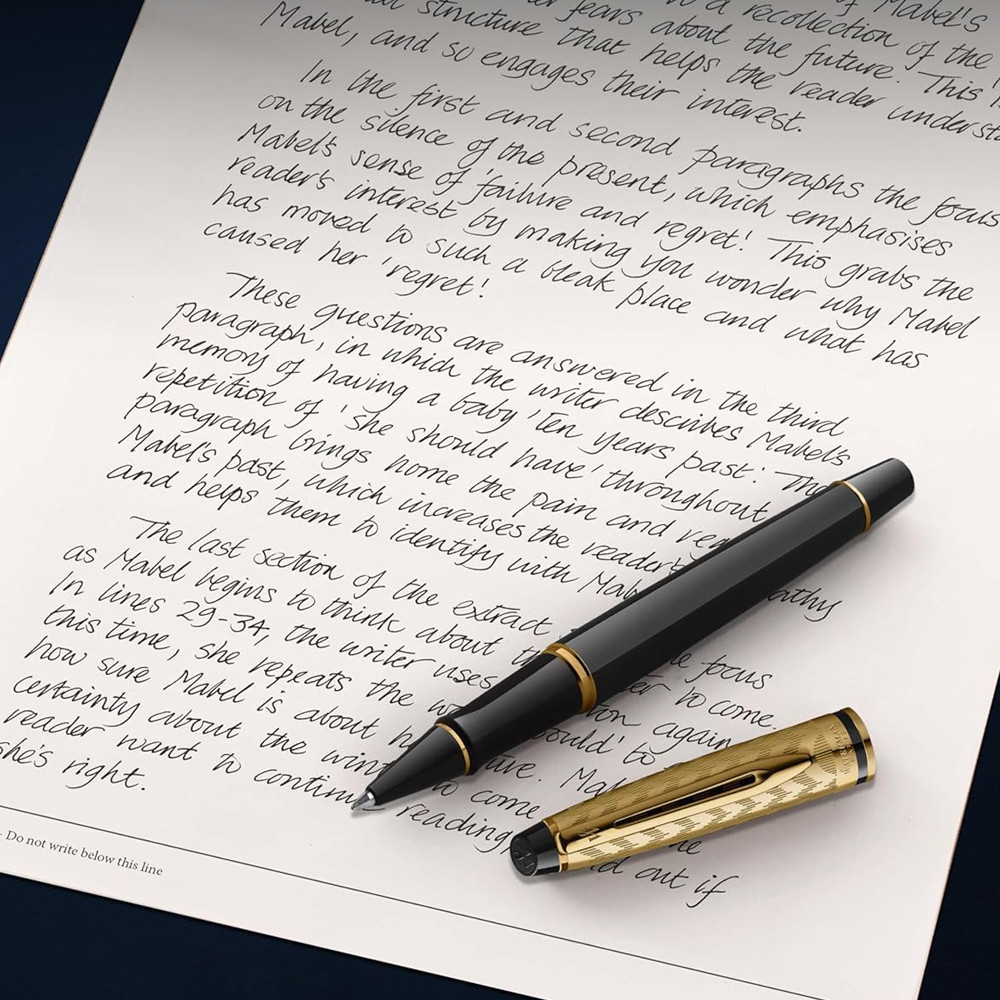 of Mabel's
fears about a recollection of the
structure that helps the future. This
Mabel, and so engages their interest. the reader
In the first and second paragraphs the focus
on the silence of the present, which emphasises
Mabel's sense of 'failure and regret! This grabs the
reader's interest by making you wonder why Mabel
has moved to such a bleak place and what has
caused her 'regret!
These questions are answered in the third
paragraph, in which the writer describes Mabel's
memory of having a baby 'Ten years past'. The
repetition of 'she should have' throughout
paragraph brings home the pain and
Mabel's past, which increases the reader's
and helps them to identify with
The last section of the extract focus
as Mabel begins to think about to come.
In lines 29-34, the writer uses again
this time, she repeats the to
how sure Mabel is about
certainty about the to come
reader want to continue reading out if
she's right.
Do not write below this line